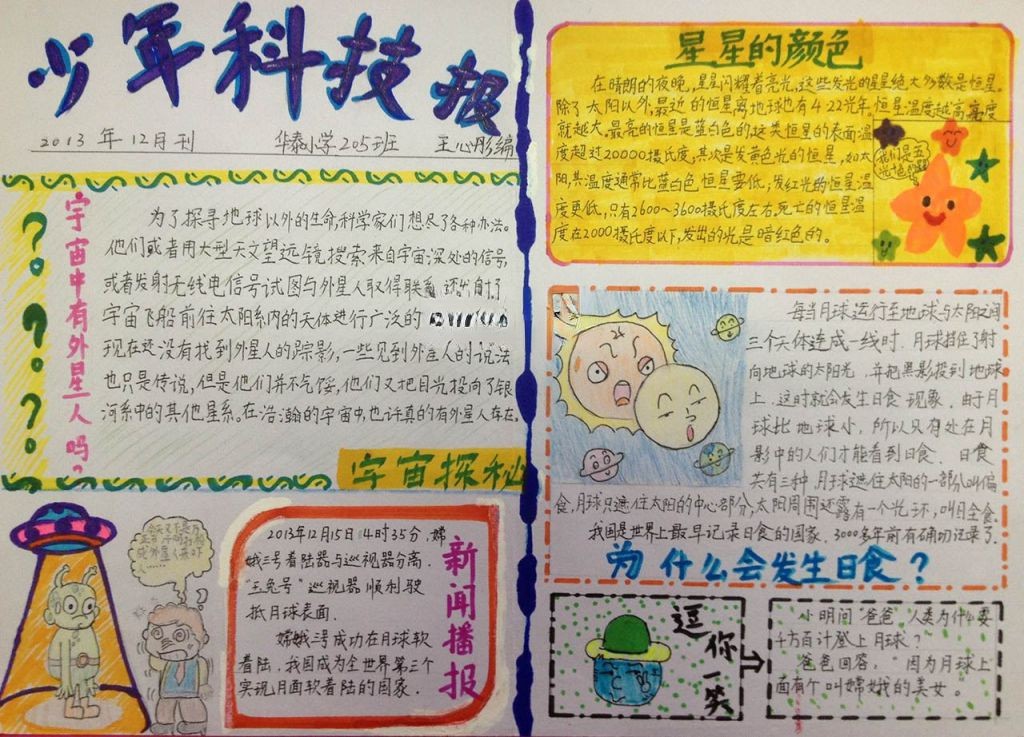 少年科技报
2013年12月刊 华泰小学205班 王心彤编
宇宙中有外星人吗？
为了探寻地球以外的生命,科学家们想尽了各种办法。
他们或者用大型天文望远镜搜索来自宇宙深处的信号,
或者发射无线电信号试图与外星人取得联系
宇宙飞船前往太阳系内的天体进行广泛的
现在还没有找到外星人的踪影,一些见到外星人的说法
也只是传说,但是他们并不气馁,他们又把目光投向了银
河系中的其他星系。在浩瀚的宇宙中,也许真的有外星人存在。
宇宙探秘
新闻播报
2013年12月15日4时35分,嫦
娥三号着陆器与巡视器分离,
"玉兔号"巡视器顺利驶
抵月球表面.
嫦娥三号成功在月球软
着陆,我国成为全世界第三个
实现月面软着陆的国家.
星星的颜色
在晴朗的夜晚,星星闪耀着亮光,这些发光的星星绝大多数是恒星.
除了太阳以外,最近的恒星离地球也有4.22光年.恒星温度越高亮度
就越大.最亮的恒星是蓝白色的,这类恒星的表面温
度超过20000摄氏度,其次是发黄色光的恒星,如太
阳,其温度通常比蓝白色恒星要低;发红光的恒星温
度更低,只有2600~3600摄氏度左右,死亡的恒星温
度在2000摄氏度以下,发出的光是暗红色的。
我们是五
每当月球运行至地球与太阳之间
三个天体连成一线时.月球挡住了射
向地球的太阳光,并把黑影投到地球
上.这时就会发生日食现象.由于月
球比地球小,所以只有处在月
影中的人们才能看到日食.日食
共有三种,月球遮住太阳的一部分叫偏
食,月球只遮住太阳的中心部分,太阳周围还露有一个光环,叫日全食.
我国是世界上最早记录日食的国家,3000多年前有确切记录了.
为什么会发生日食？
逗你一笑
小明问"爸爸,人类为什么要
千方百计登上月球？
爸爸回答,"因为月球上
面有个叫嫦娥的美女。